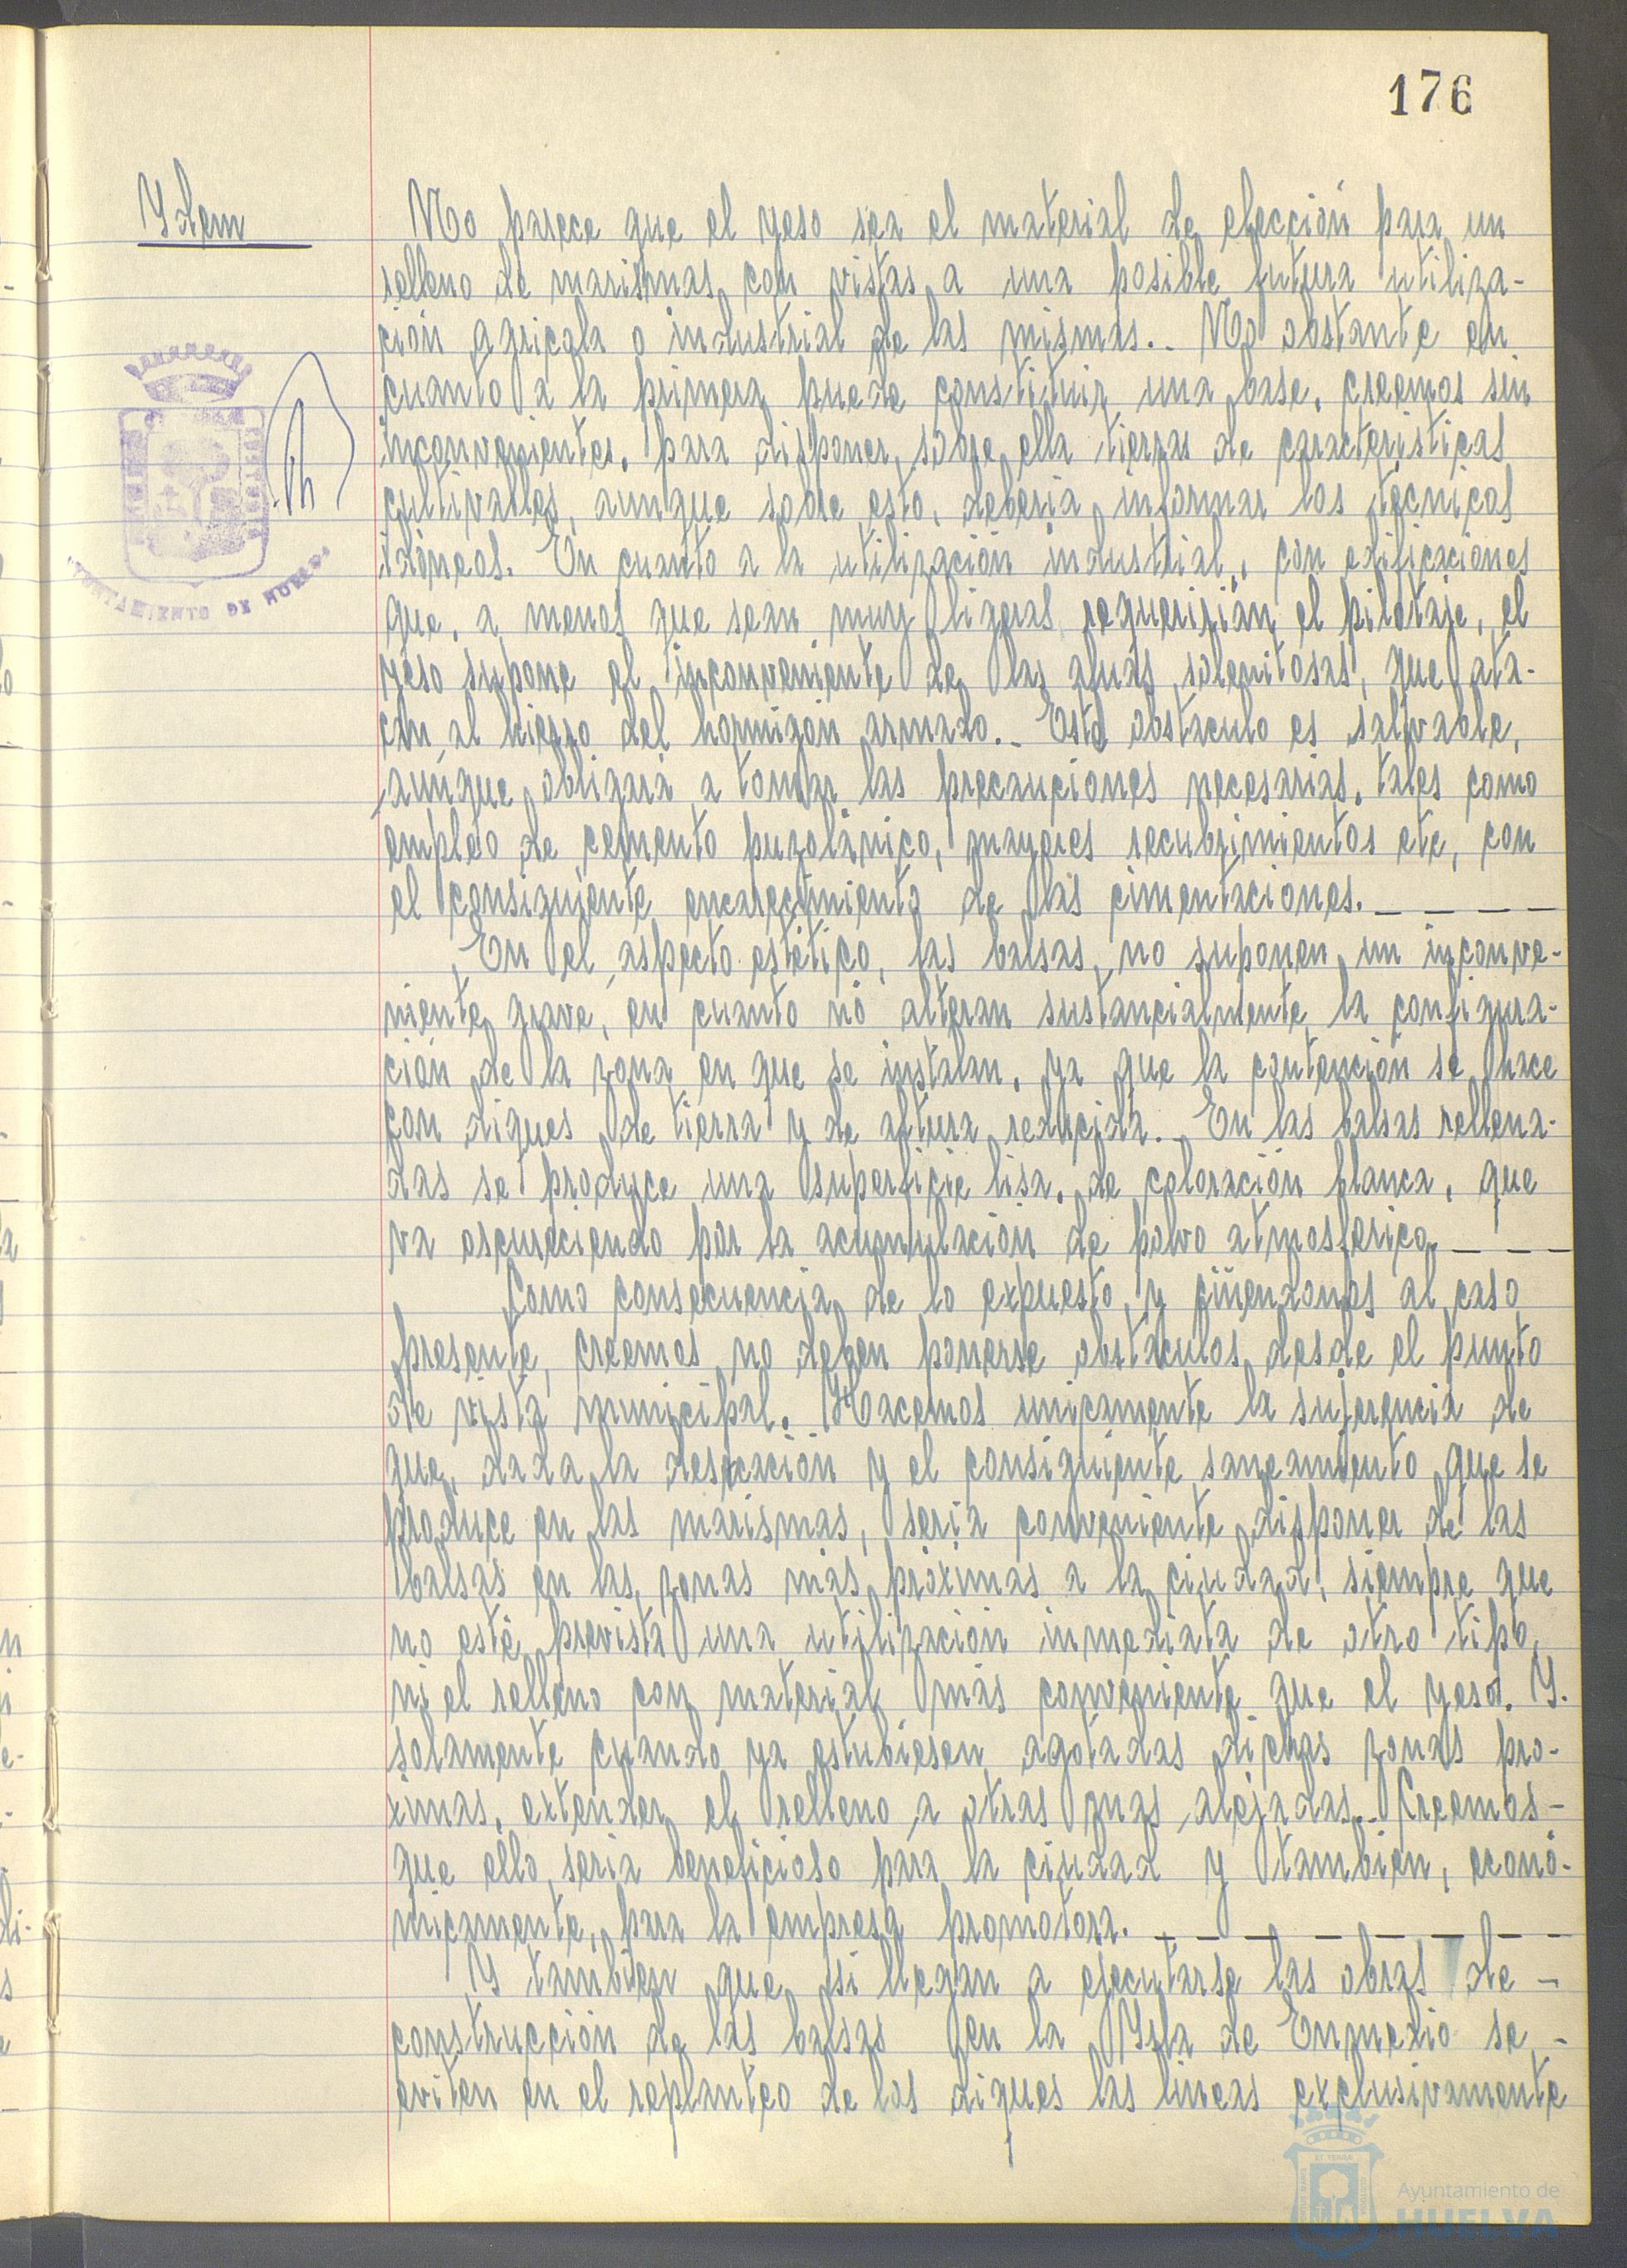 176
Ydem
No parece que el yeso sea el material de elección para un
relleno de marismas con vistas a una posible futura utiliza-
ción agricola o industrial de las mismas.- No obstante en
cuanto a la primera puede constituir una base, creemos sin
inconvenientes, para disponer sobre ella tierras de caracteristicas
cultivables, aunque sobre esto, deberia informar los técnicos
idóneos. En cuanto a la utilización industrial, con edificaciones
que, a menos que sean muy ligeras requerirían el pilotaje, el
yeso supone el inconveniente de las aguas selenitosas, que ata-
can al hierro del hormigón armado.- Este obstaculo es salvable,
aunque obligará a tomar las precauciones necesarias, tales como
empleo de cemento puzolánico, mayores recubrimientos etc, con
el consiguiente encarecimiento de las cimentaciones. - - - -
En el aspecto estético, las balsas, no suponen un inconve-
niente grave, en cuanto no alteran sustancialmente la configura-
ción de la zona en que se instalan, ya que la contención se hace
con diques de tierra y de altura reducida.- En las balsas rellena-
das se produce una superficie lisa, de coloración blanca, que
va oscureciendo por la acumulación de polvo atmosferico. - - -
Como consecuencia de lo expuesto, y ciñendonos al caso
presente, creemos no deben ponerse obstáculos desde el punto
de vista municipal. Hacemos unicamente la sugerencia de
que, dada la desecación y el consiguiente saneamiento que se
produce en las marismas, seria conveniente disponer de las
balsas en las zonas más próximas a la ciudad, siempre que
no esté prevista una utilización inmediata de otro tipo,
ni el relleno con material más conveniente que el yeso. Y.
solamente cuando ya estubiesen agotadas dichas zonas pro-
ximas, extender el relleno a otras mas alejadas.- Creemos-
que ello seria beneficioso para la ciudad y tambien, econó-
micamente, para la empresa promotora. - - - - - - -
Y tambien que si llegan a ejecutarse las obras de -
construcción de las balsas en la Ysla de Enmedio se -
eviten en el replanteo de los diques las lineas exclusivamente
AYUNTAMIENTO DE HUELVA
Ayuntamiento de
HUELVA